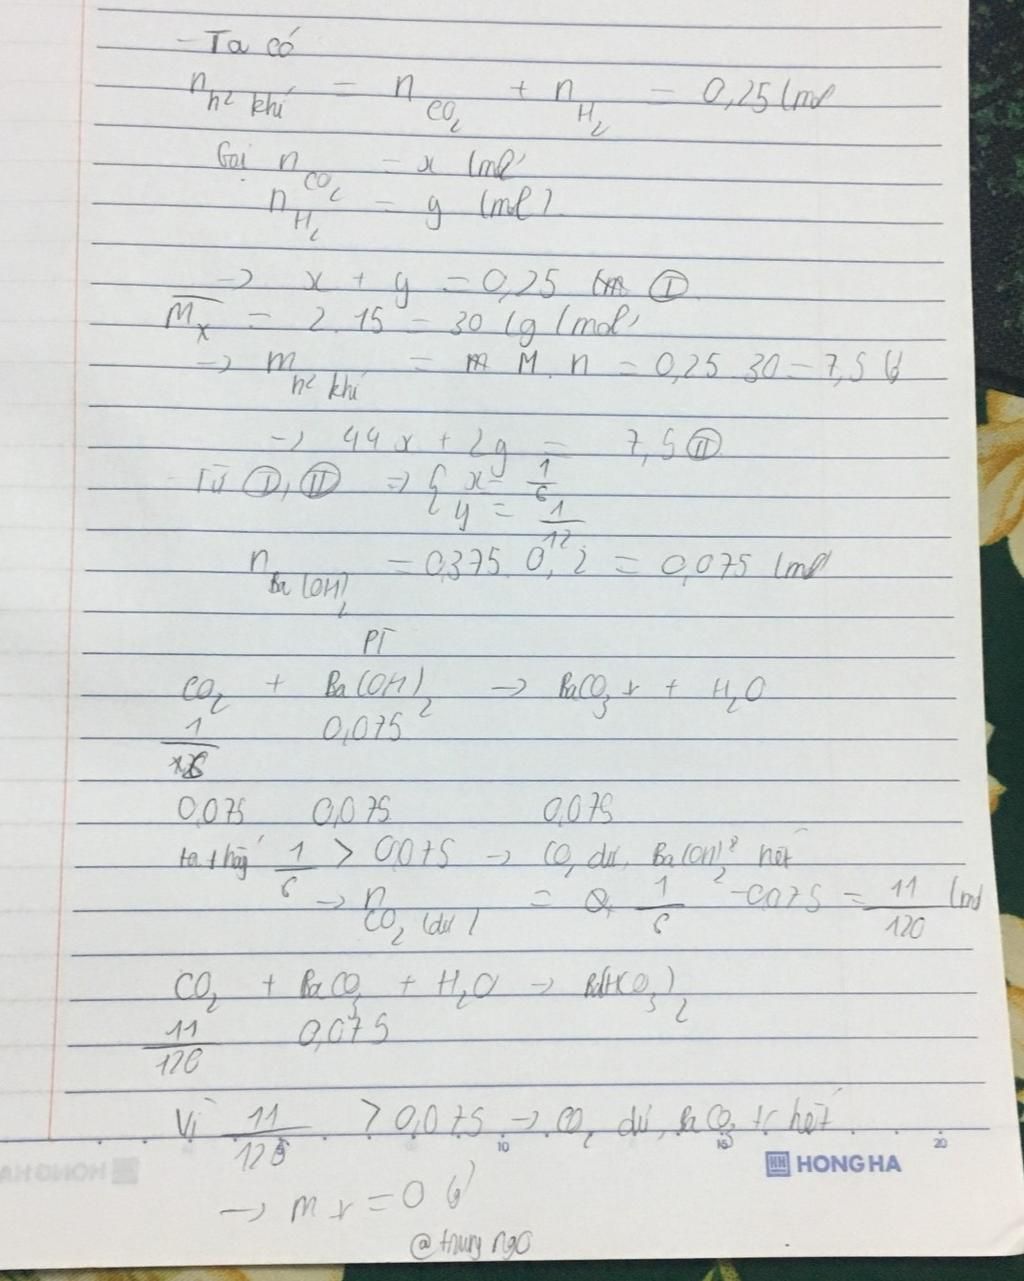 - Ta có
n h² khí = n CO₂ + n H₂ = 0,25 (mol
Gọi n CO₂ = x (mol)
n H₂ = y (mol).
-> x + y = 0,25 (I)
M̅x = 2.15 = 30 (g/mol)
-> m h² khí = M. n = 0,25 30 = 7,5 (g)
-> 44x + 2y = 7,5 (II)
Từ (I), (II) => { x = 1/6
y = 1/12
n Ba(OH)₂ = 0,375. 0,2 = 0,075 (mol
PT
CO₂ + Ba(OH)₂ -> BaCO₃↓ + H₂O
1/6 0,075
0,075 0,075 0,075
ta thấy 1/6 > 0,075 -> CO₂ dư, Ba(OH)₂ hết
-> n CO₂ (dư) = 1/6 - 0,075 = 11/120 (mol
CO₂ + BaCO₃ + H₂O -> Ba(HCO₃)₂
11/120 0,075
Vì 11/120 > 0,075 -> CO₂ dư, BaCO₃ hết
10 15 20
HONG HA
-> m↓ = 0 (g)
@trung ngo